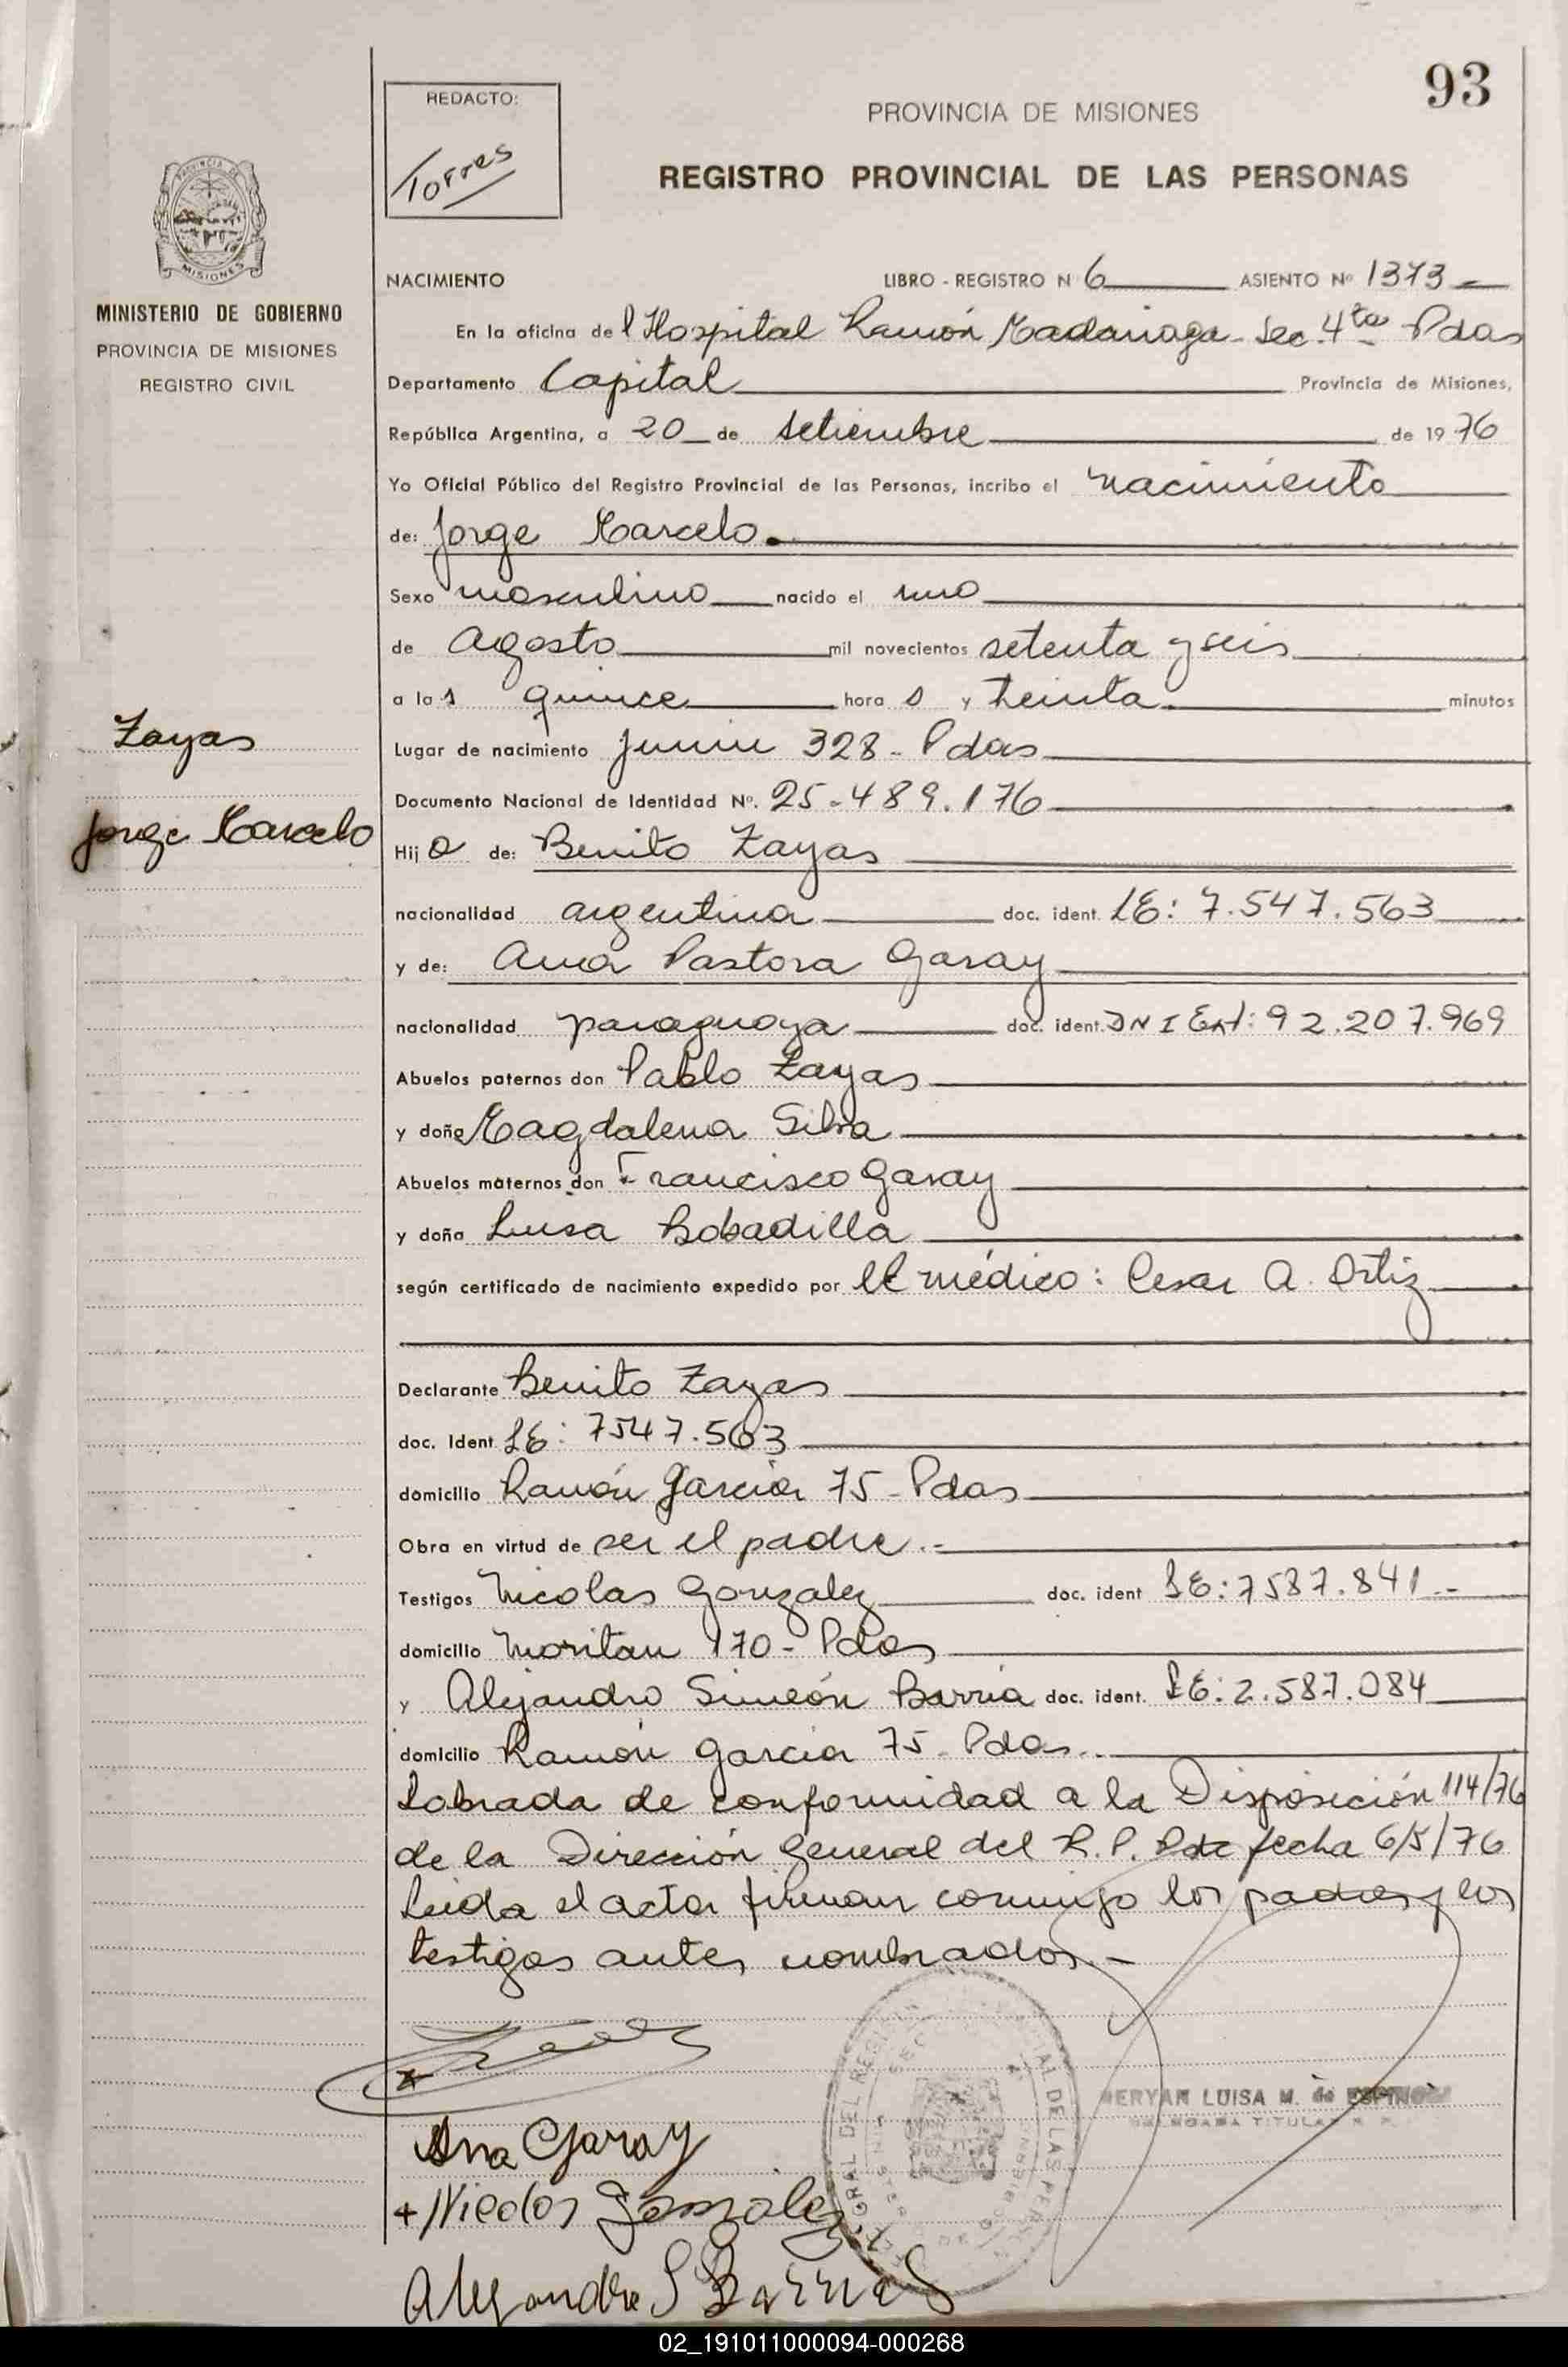 93
REDACTO:
Torres
PROVINCIA DE MISIONES
REGISTRO PROVINCIAL DE LAS PERSONAS
MISIONES
MINISTERIO DE GOBIERNO
PROVINCIA DE MISIONES
REGISTRO CIVIL
NACIMIENTO LIBRO - REGISTRO N 6 ASIENTO Nº 1373
En la oficina del Hospital Ramón Madariaga - Sec. 4ta Pdas
Departamento Capital Provincia de Misiones,
República Argentina, a 20 de setiembre de 1976
Yo Oficial Público del Registro Provincial de las Personas, incribo el nacimiento
de: Jorge Marcelo.
Sexo masculino nacido el uno
de Agosto mil novecientos setenta y seis
a las quince horas y treinta minutos
Zayas
Jorge Marcelo
Lugar de nacimiento Junin 328 - Pdas
Documento Nacional de Identidad Nº. 25.489.176
Hijo de: Benito Zayas
nacionalidad argentina doc. ident. LE: 7.547.563
y de: Ana Pastora Garay
nacionalidad paraguaya doc. ident. DNI Ext: 92.207.969
Abuelos paternos don Pablo Zayas
y doña Magdalena Silva
Abuelos maternos don Francisco Garay
y doña Luisa Bobadilla
según certificado de nacimiento expedido por el médico: Cesar A. Ortiz
Declarante Benito Zayas
doc. Ident LE: 7547.563
domicilio Ramón García 75 - Pdas
Obra en virtud de ser el padre.-
Testigos Nicolas Gonzalez doc. ident LE: 7587.841.-
domicilio Moritan 170 - Pdas
y Alejandro Simeón Barria doc. ident. LE: 2.587.084
domicilio Ramón García 75 - Pdas..
Labrada de conformidad a la Disposición 114/76
de la Dirección General del R. P. P de fecha 6/5/76
Leida el acta firman conmigo los padres y los
testigos antes nombrados.-
MERYAN LUISA M. de ESPINOSA
Ana Garay
+ Nicolas Gonzalez
Alejandro S Barria
02_191011000094-000268